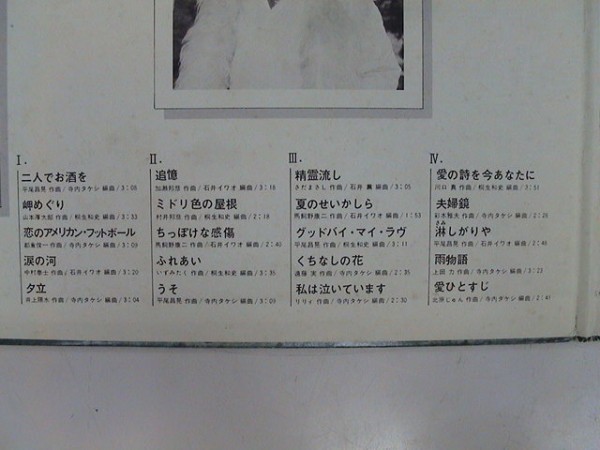 I.
二人でお酒を
平尾昌晃 作曲/寺内タケシ 編曲/3:08
岬めぐり
山本厚太郎 作曲/桐生和史 編曲/3:33
恋のアメリカン・フットボール
都倉俊一 作曲/寺内タケシ 編曲/3:09
涙の河
中村泰士 作曲/石井イワオ 編曲/3:20
夕立
井上陽水 作曲/寺内タケシ 編曲/3:04
II.
追憶
加瀬邦彦 作曲/石井イワオ 編曲/3:18
ミドリ色の屋根
村井邦彦 作曲/桐生和史 編曲/2:18
ちっぽけな感傷
馬飼野康二 作曲/石井イワオ 編曲/2:40
ふれあい
いずみたく 作曲/桐生和史 編曲/3:35
うそ
平尾昌晃 作曲/寺内タケシ 編曲/3:09
III.
精霊流し
さだまさし 作曲/石井 薫 編曲/3:05
夏のせいかしら
馬飼野康二 作曲/石井イワオ 編曲/1:53
グッドバイ・マイ・ラヴ
平尾昌晃 作曲/桐生和史 編曲/3:11
くちなしの花
遠藤 実 作曲/石井イワオ 編曲/2:35
私は泣いています
りりィ 作曲/寺内タケシ 編曲/2:30
IV.
愛の詩を今あなたに
川口 真 作曲/桐生和史 編曲/3:31
夫婦鏡
彩木雅夫 作曲/寺内タケシ 編曲/2:28
さみ
淋しがりや
平尾昌晃 作曲/石井イワオ 編曲/2:46
雨物語
上田 力 作曲/寺内タケシ 編曲/3:23
愛ひとすじ
北原じゅん 作曲/寺内タケシ 編曲/2:41